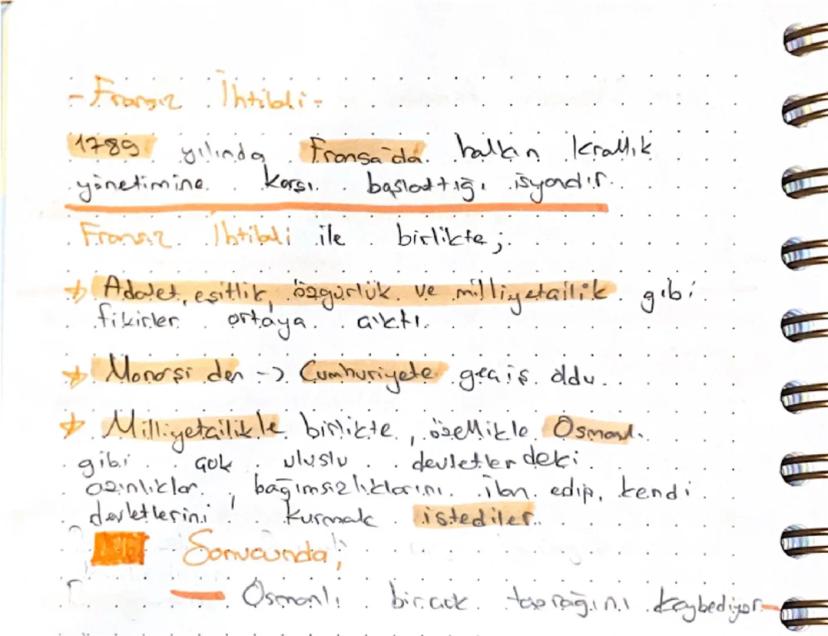 -Fransız İhtilali-
1789 yılında Fransa'da halkın krallık
yönetimine karşı başlattığı isyandır.
Fransız İhtilali ile birlikte;
Adalet, eşitlik, özgürlük ve milliyetçilik gibi
fikirler ortaya çıktı.
Monarşi den -> Cumhuriyete geçiş oldu.
Milliyetçilikle birlikte, özellikle Osmanlı
gibi çok uluslu devletlerdeki
azınlıklar, bağımsızlıklarını ilan edip, kendi
devletlerini kurmak istediler.
Sonucunda;
Osmanlı birçok toprağını kaybediyor